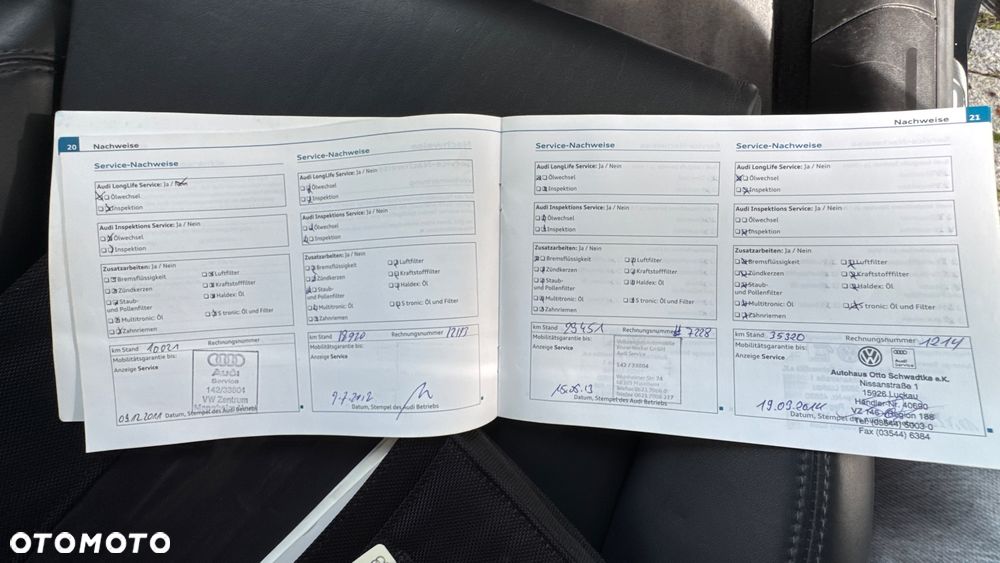 20 Nachweise
Service-Nachweise
Audi LongLife Service: Ja / Nein
Ölwechsel
Inspektion
Audi Inspektions Service: Ja / Nein
Ölwechsel
Inspektion
Zusatzarbeiten: Ja / Nein
Bremsflüssigkeit
Zündkerzen
Staub-
und Pollenfilter
Multitronic: Öl
Zahnriemen
Luftfilter
Kraftstofffilter
Haldex: Öl
S tronic: Öl und Filter
km Stand 10021 Rechnungsnummer
Mobilitätsgarantie bis:
Anzeige Service
Audi
Service
142/33804
VW Zentrum
Datum, Stempel des Audi Betriebs
Service-Nachweise
Audi LongLife Service: Ja / Nein
Ölwechsel
Inspektion
Audi Inspektions Service: Ja / Nein
Ölwechsel
Inspektion
Zusatzarbeiten: Ja / Nein
Bremsflüssigkeit
Zündkerzen
Staub-
und Pollenfilter
Multitronic: Öl
Zahnriemen
Luftfilter
Kraftstofffilter
Haldex: Öl
S tronic: Öl und Filter
km Stand 18920 Rechnungsnummer
Mobilitätsgarantie bis:
Anzeige Service
9.7.2012
Datum, Stempel des Audi Betriebs
Nachweise 21
Service-Nachweise
Audi LongLife Service: Ja / Nein
Ölwechsel
Inspektion
Audi Inspektions Service: Ja / Nein
Ölwechsel
Inspektion
Zusatzarbeiten: Ja / Nein
Bremsflüssigkeit
Zündkerzen
Staub-
und Pollenfilter
Multitronic: Öl
Zahnriemen
Luftfilter
Kraftstofffilter
Haldex: Öl
S tronic: Öl und Filter
km Stand 29451 Rechnungsnummer 7228
Mobilitätsgarantie bis:
Anzeige Service
Audi Service
142/33804
15.05.13
Datum, Stempel des Audi Betriebs
Service-Nachweise
Audi LongLife Service: Ja / Nein
Ölwechsel
Inspektion
Audi Inspektions Service: Ja / Nein
Ölwechsel
Inspektion
Zusatzarbeiten: Ja / Nein
Bremsflüssigkeit
Zündkerzen
Staub-
und Pollenfilter
Multitronic: Öl
Zahnriemen
Luftfilter
Kraftstofffilter
Haldex: Öl
S tronic: Öl und Filter
km Stand 35320 Rechnungsnummer 1214
Mobilitätsgarantie bis:
Anzeige Service
Audi
Service
Autohaus Otto Schwadtke e.K.
Nissanstraße 1
15926 Luckau
Händler Nr. 40690
VZ 145 Region 188
Tel. (03544) 5003-0
Fax (03544) 6384
19.09.2014
Datum, Stempel des Audi Betriebs
OTOMOTO